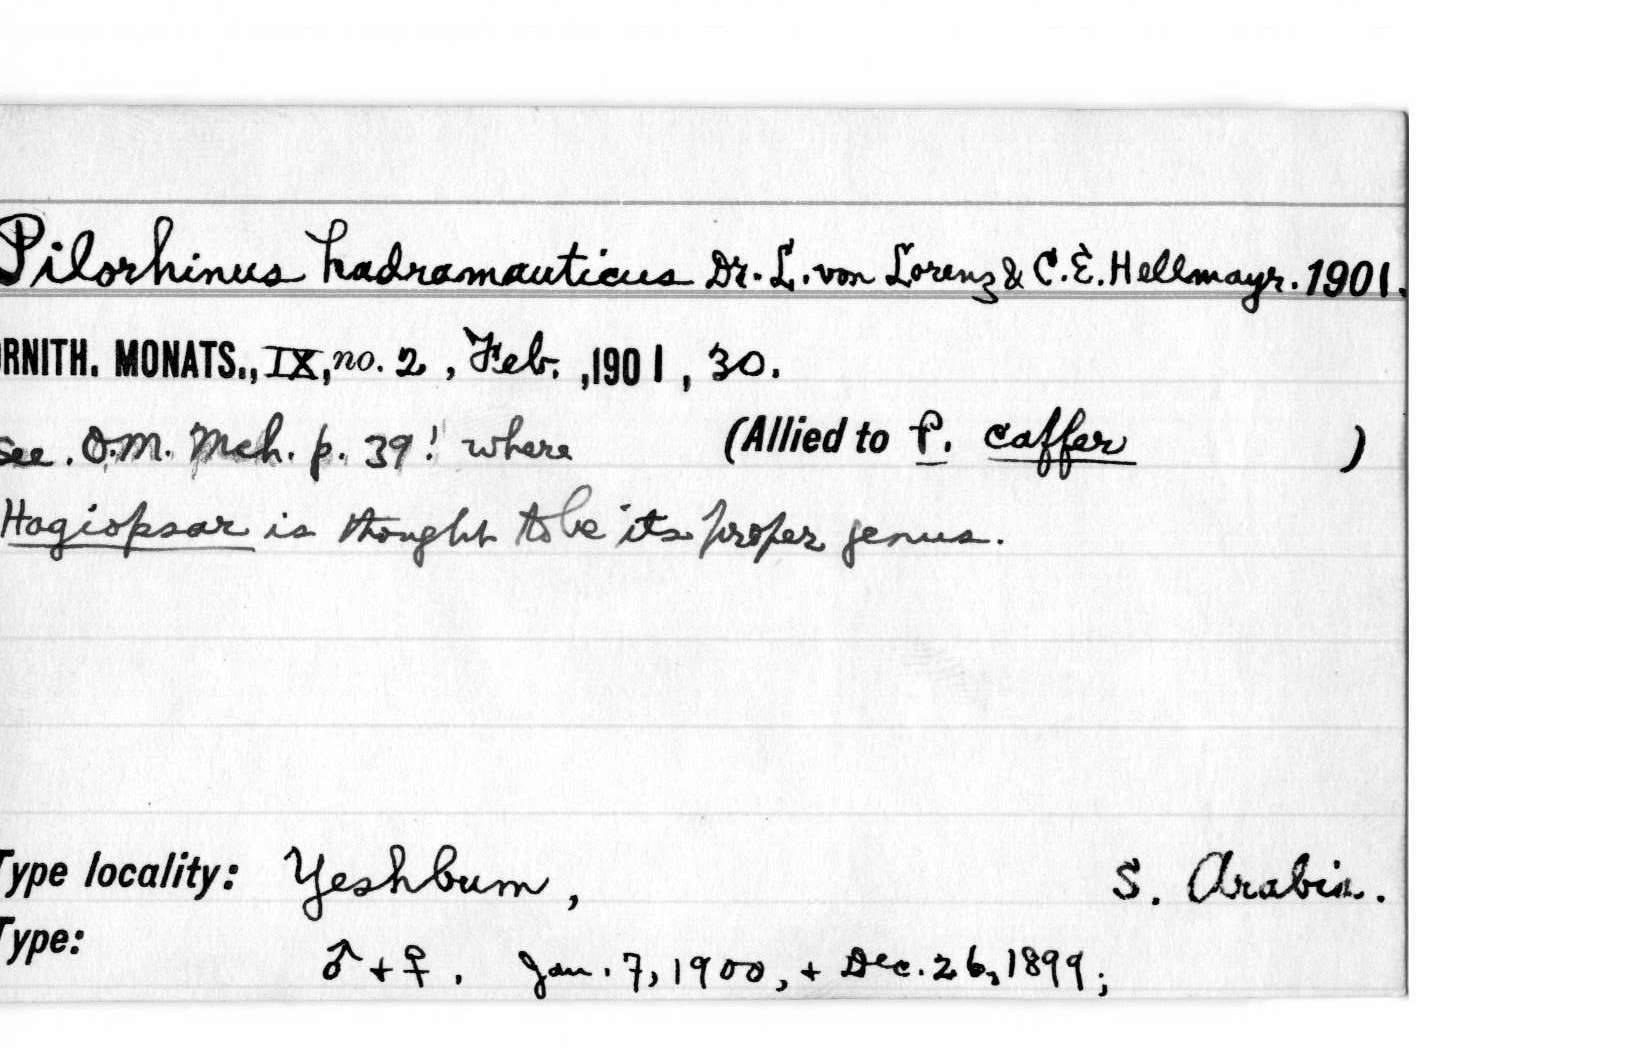 Pilorhinus hadramauticus Dr. L. von Lorenz & C. E. Hellmayr. 1901.
RNITH. MONATS., IX, no. 2, Feb., 1901, 30.
see. O.M. Mch. p. 39! where (Allied to P. caffer )
Hagiopsar is thought to be its proper genus.
Type locality: Yeshbum, S. Arabia.
Type:
♂ + ♀. Jan. 7, 1900, + Dec. 26, 1899;